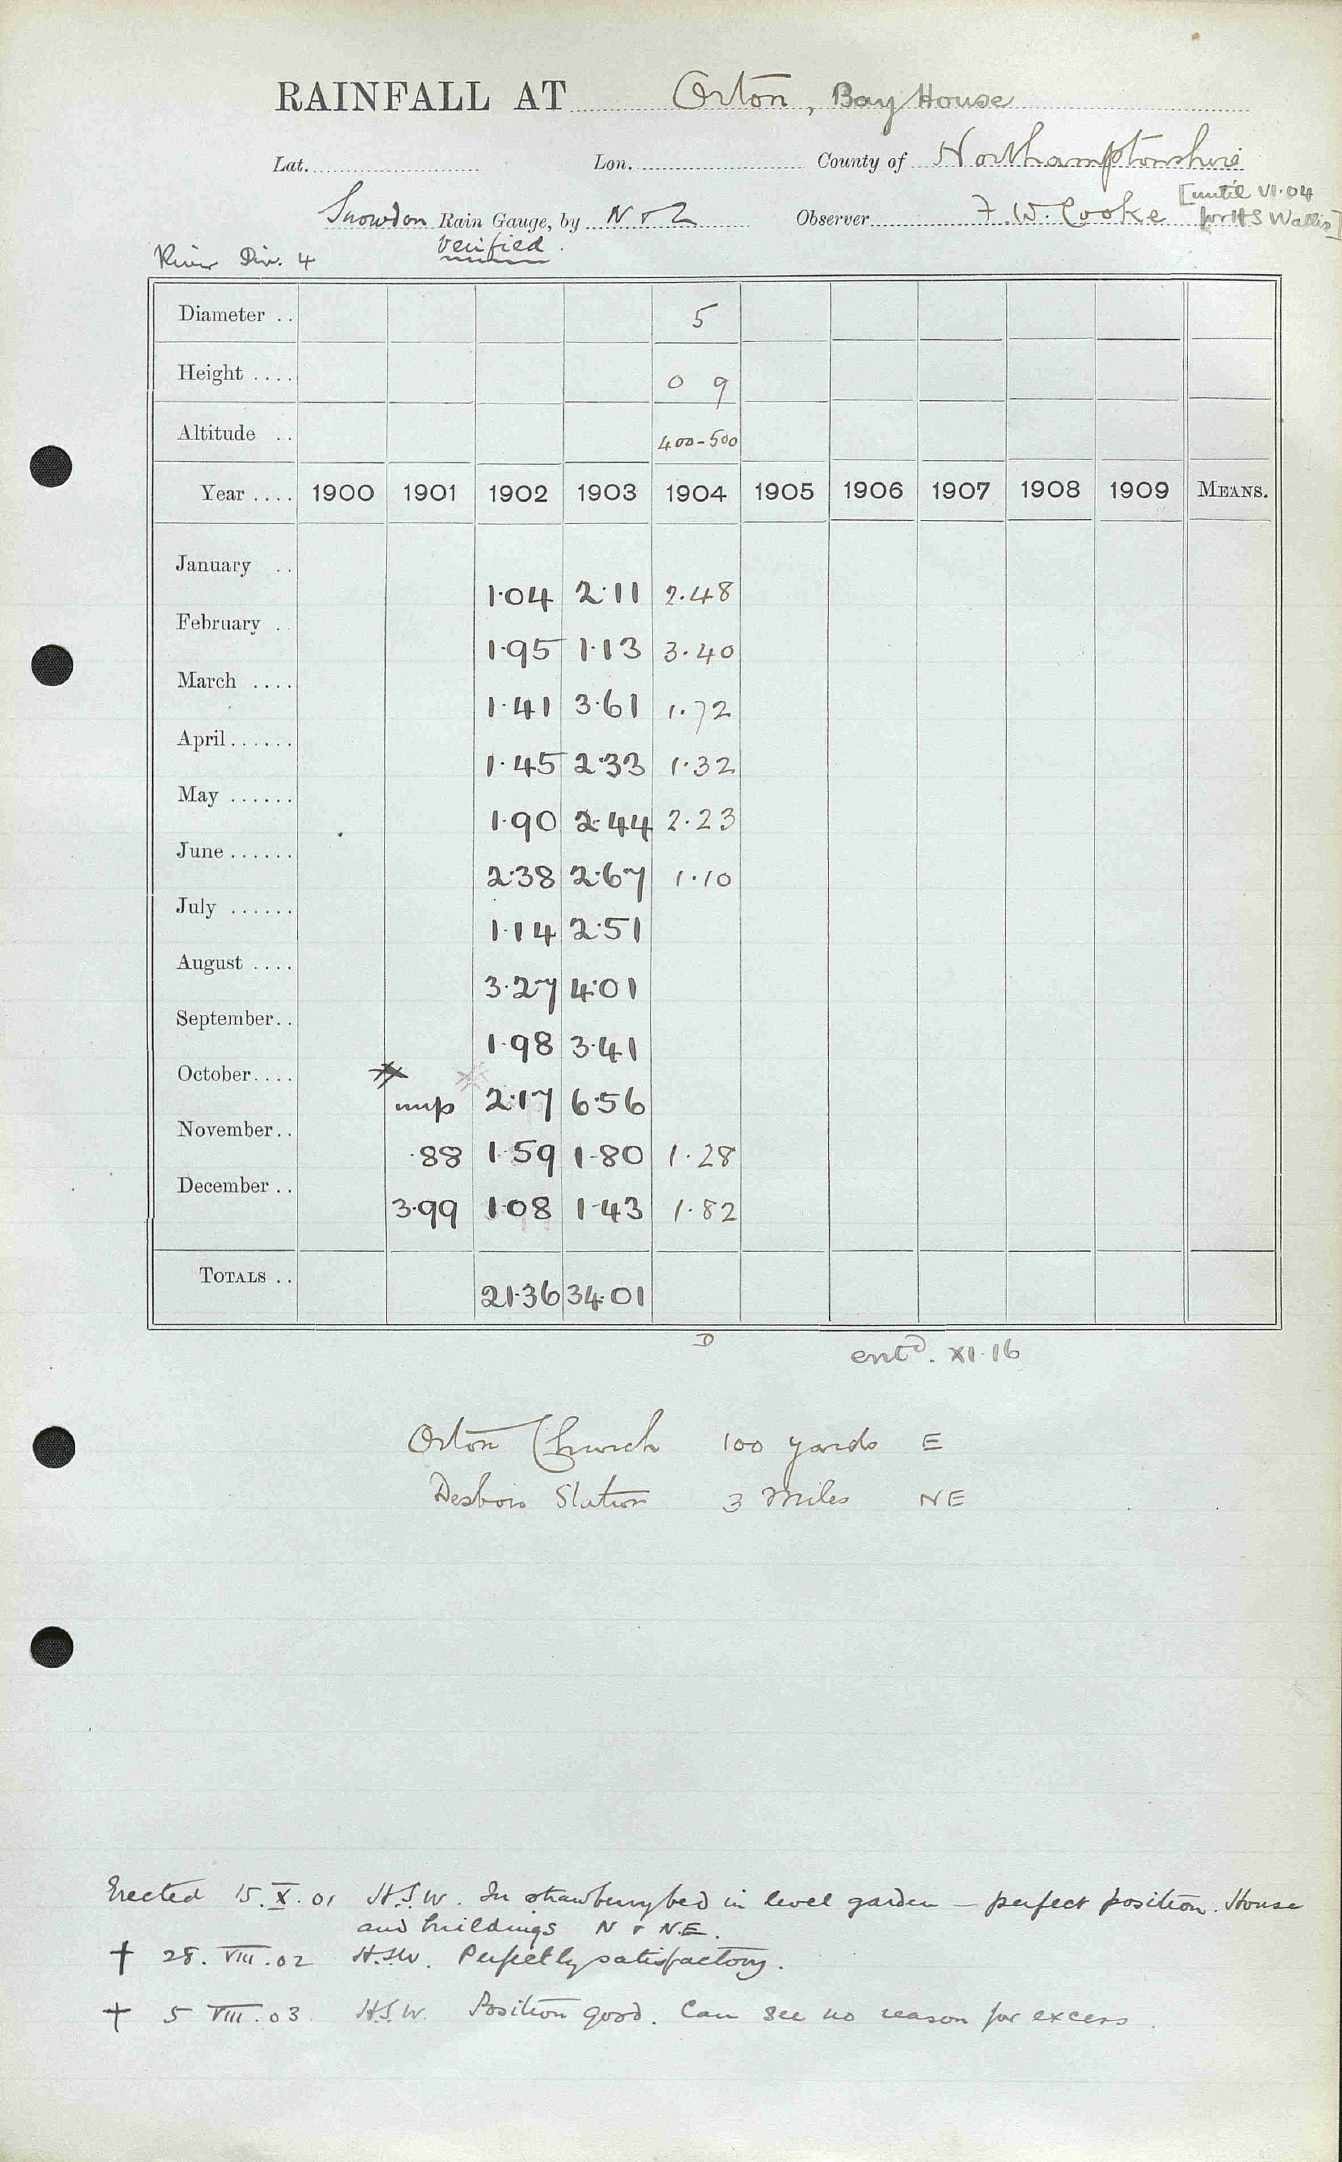 RAINFALL AT Orton, Bay House
Lat. Lon. County of Northamptonshire
Snowdon Rain Gauge, by N & Z Observer F. W. Cooke [until VI.04 for H S Wallis]
River Div. 4 Verified.
Diameter .. 5
Height .... 0 9
Altitude .. 400-500
Year .... 1900 1901 1902 1903 1904 1905 1906 1907 1908 1909 MEANS.
January .. 1.04 2.11 2.48
February . 1.95 1.13 3.40
March .... 1.41 3.61 1.72
April...... 1.45 2.33 1.32
May ...... 1.90 2.44 2.23
June...... 2.38 2.67 1.10
July ...... 1.14 2.51
August .... 3.27 4.01
September.. 1.98 3.41
October.... 2.17 6.56
November.. .88 1.59 1.80 1.28
December .. 3.99 1.08 1.43 1.82
TOTALS .. 21.36 34.01
D
entd. XI.16
Orton Church 100 yards E
Desboro Station 3 Miles NE
Erected 15.X.01 H.S.W. In strawberry bed in level garden — perfect position. House
and buildings N & N.E.
† 28. VIII.02 H.S.W. Perfectly satisfactory.
† 5 VIII.03. H.S.W. Position good. Can see no reason for excess.